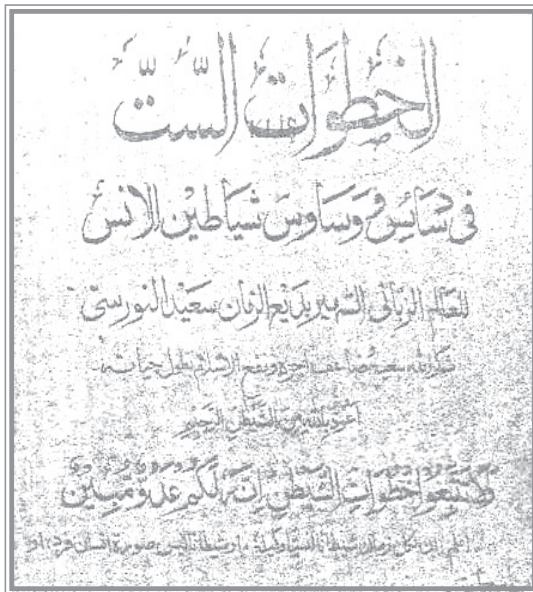 الخطوات الستّ
في دسائس و وساوس شياطين الانس
للعالم الربانى الشهير بديع الزمان سعيد النورسى
شكر الله سعيه وضاعف اجره ونفع الاسلام بطول حياته
اعوذ بالله من الشيطان الرجيم
وَلَا تَتَّبِعُوا خُطُوَاتِ الشَّيْطَانِ اِنَّهُ لَكُمْ عَدُوٌّ مُبِينٌ
اعلم ان لكل زمان شيطانا انسيا صورة انسان